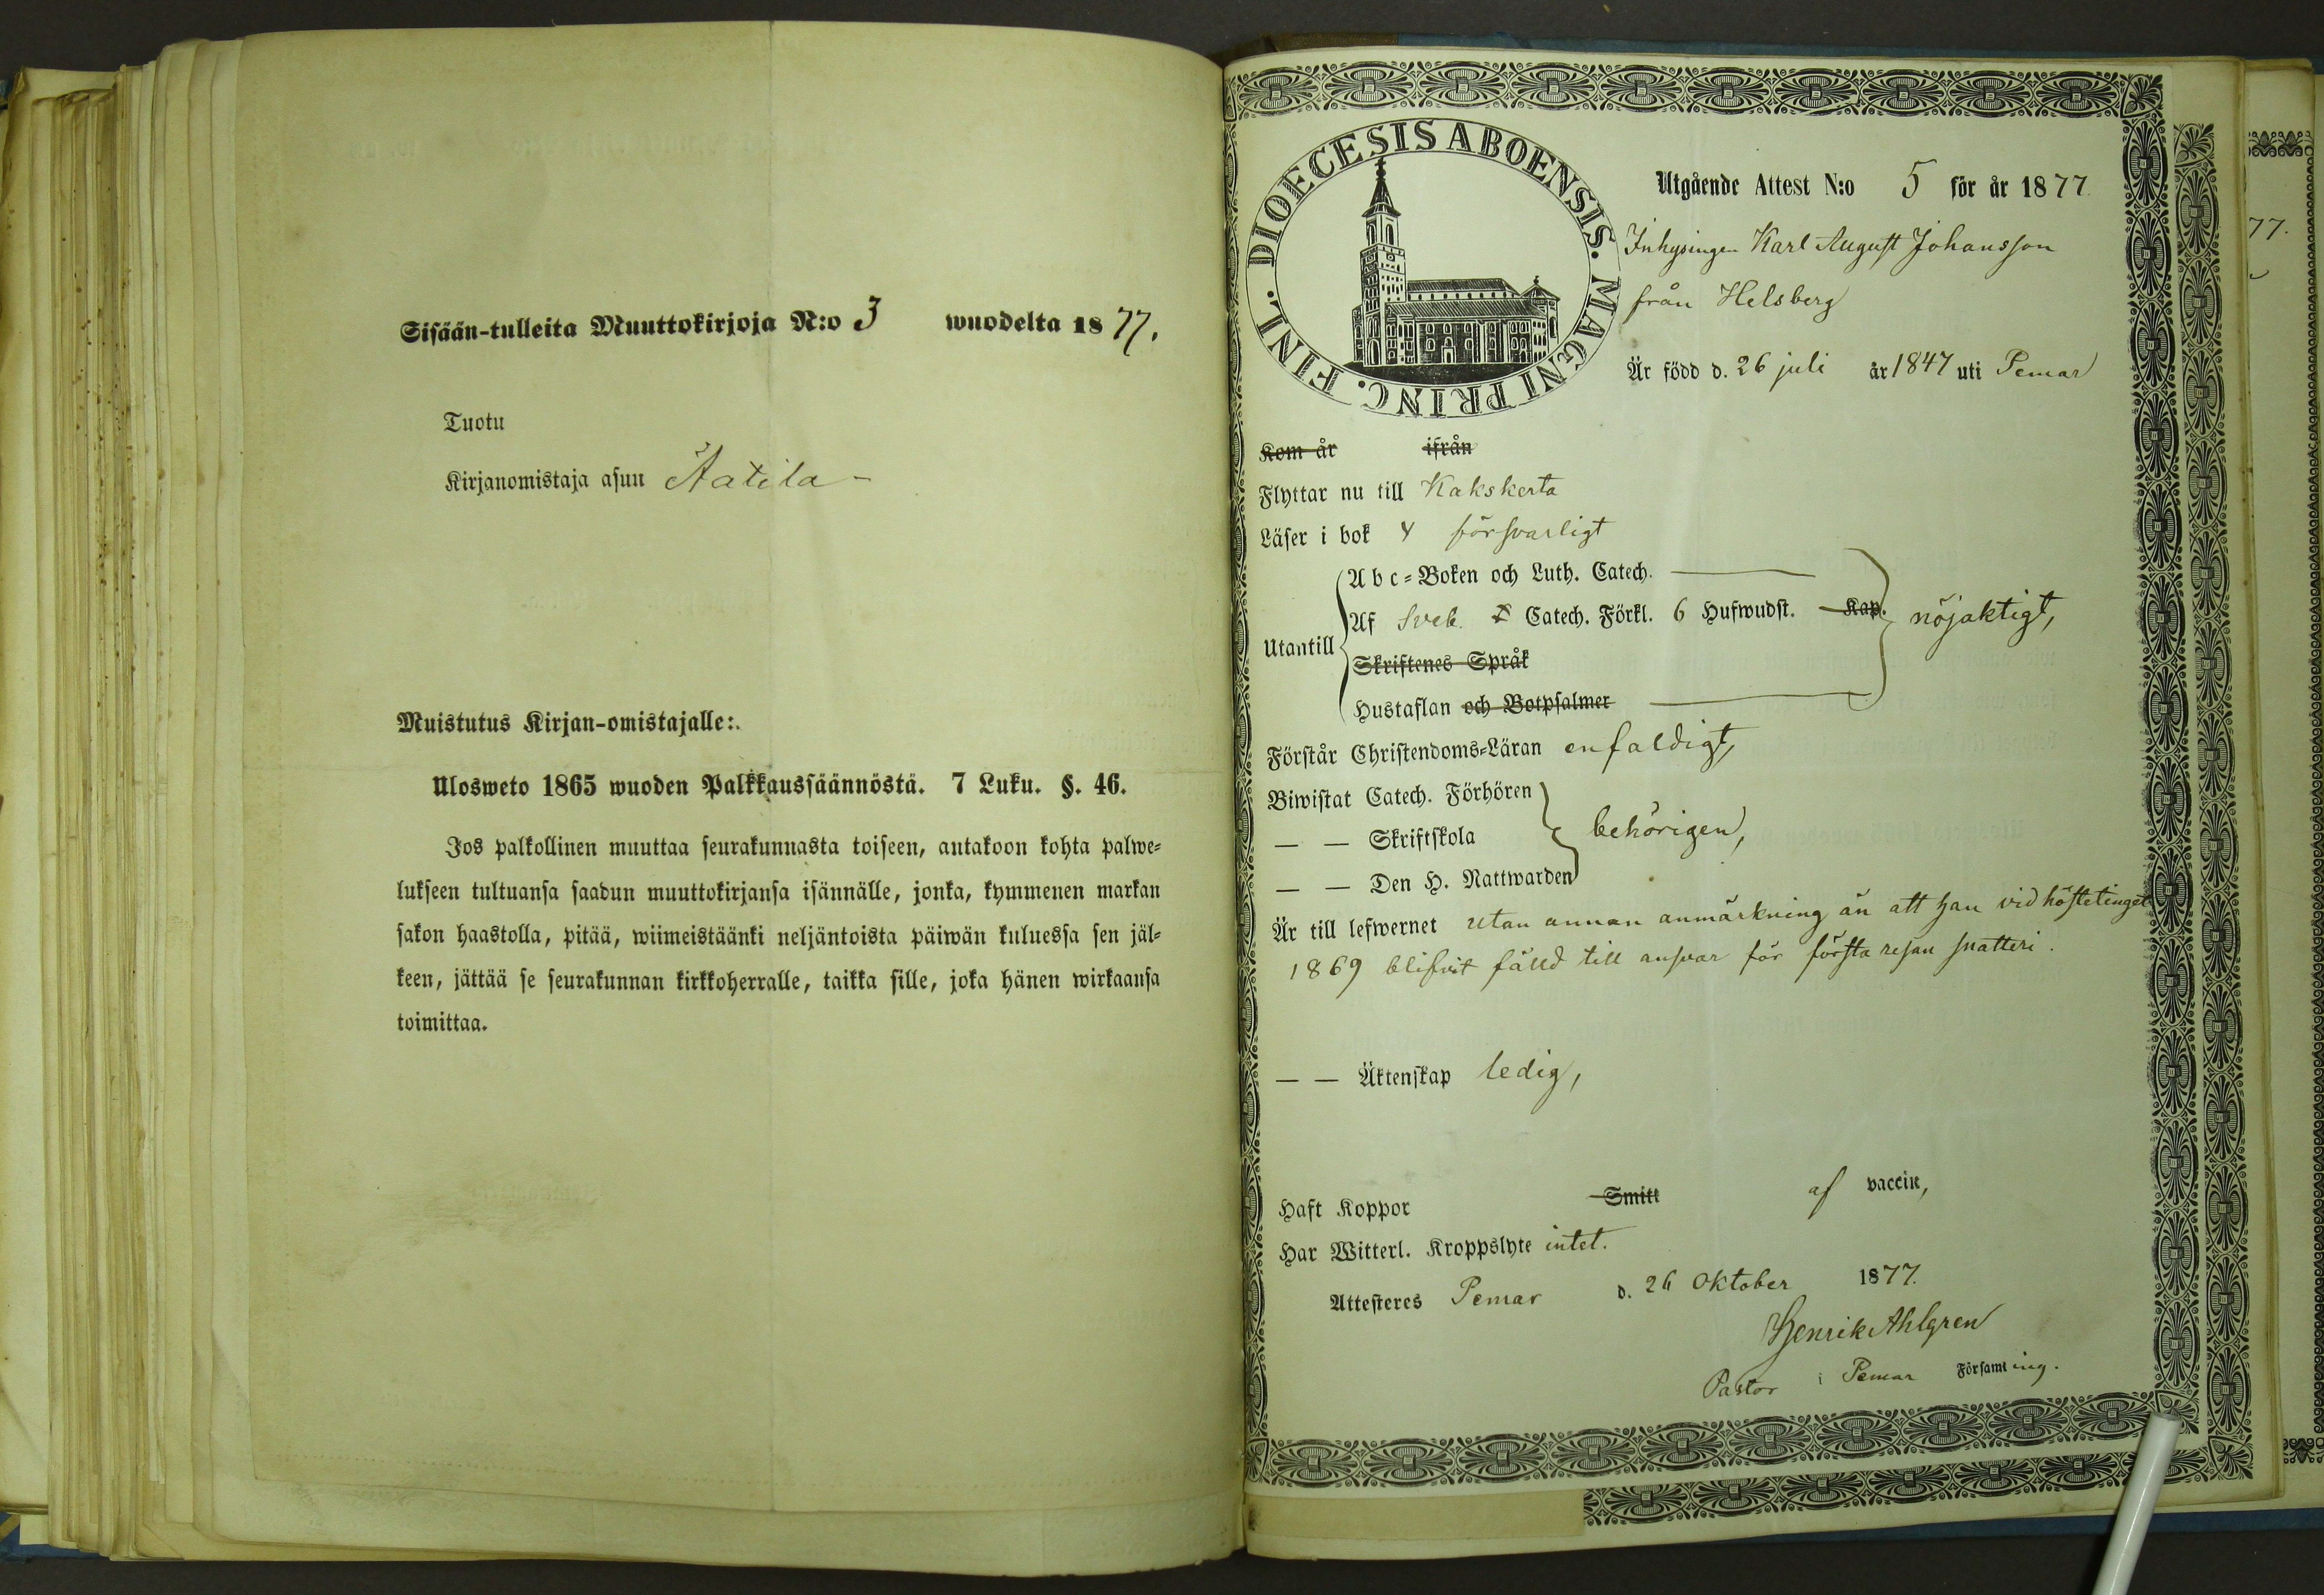 Sisään-tulleita Muuttokirjoja N:o 3 wuodelta 1877.
Tuotu
Kirjanomistaja asuu Äatila -
Muistutus Kirjan-omistajalle:
Ulosweto 1865 wuoden Palkkaussäännöstä. 7 Luku. §. 46.
Jos palkollinen muuttaa seurakunnasta toiseen, antakoon kohta palwe-
lukseen tultuansa saadun muuttokirjansa isännälle, jonka, kymmenen markan
sakon haastolla, pitää, wiimeistäänki neljäntoista päiwän kuluessa sen jäl-
keen, jättää se seurakunnan kirkkoherralle, taikka sille, joka hänen wirkaansa
toimittaa.
DIOECESIS ABOENSIS. MAGNI PRINC. FINL.
Utgående Attest N:o 5 för år 1877
Inhysingen Karl August Johansson
från Helsberg
Är född d. 26 juli år 1847 uti Pemar
Kom år ifrån
Flyttar nu till Kakskerta
Läser i bok försvarligt
Utantill
Abc-Boken och Luth. Catech.
Af Sveb. Catech. Förkl. 6 Hufwudst. Kap. nöjaktigt,
Skriftenes Språk
Hustaflan och Botpsalmer
Förstår Christendoms-Läran enfaldigt,
Biwistat Catech. Förhören
— — Skriftskola behörigen,
— — Den H. Nattwarden
Är till lefwernet utan annan anmärkning än att han vid höstetinget
1869 blifvit fälld till ansvar för första resan snatteri.
— — Äktenskap ledig,
Haft Koppor Smitt af vaccin,
Har Witterl. Kroppslyte intet.
Attesteres Pemar d. 26 Oktober 1877.
Henrik Ahlgren
Pastor i Pemar Församling.
77.